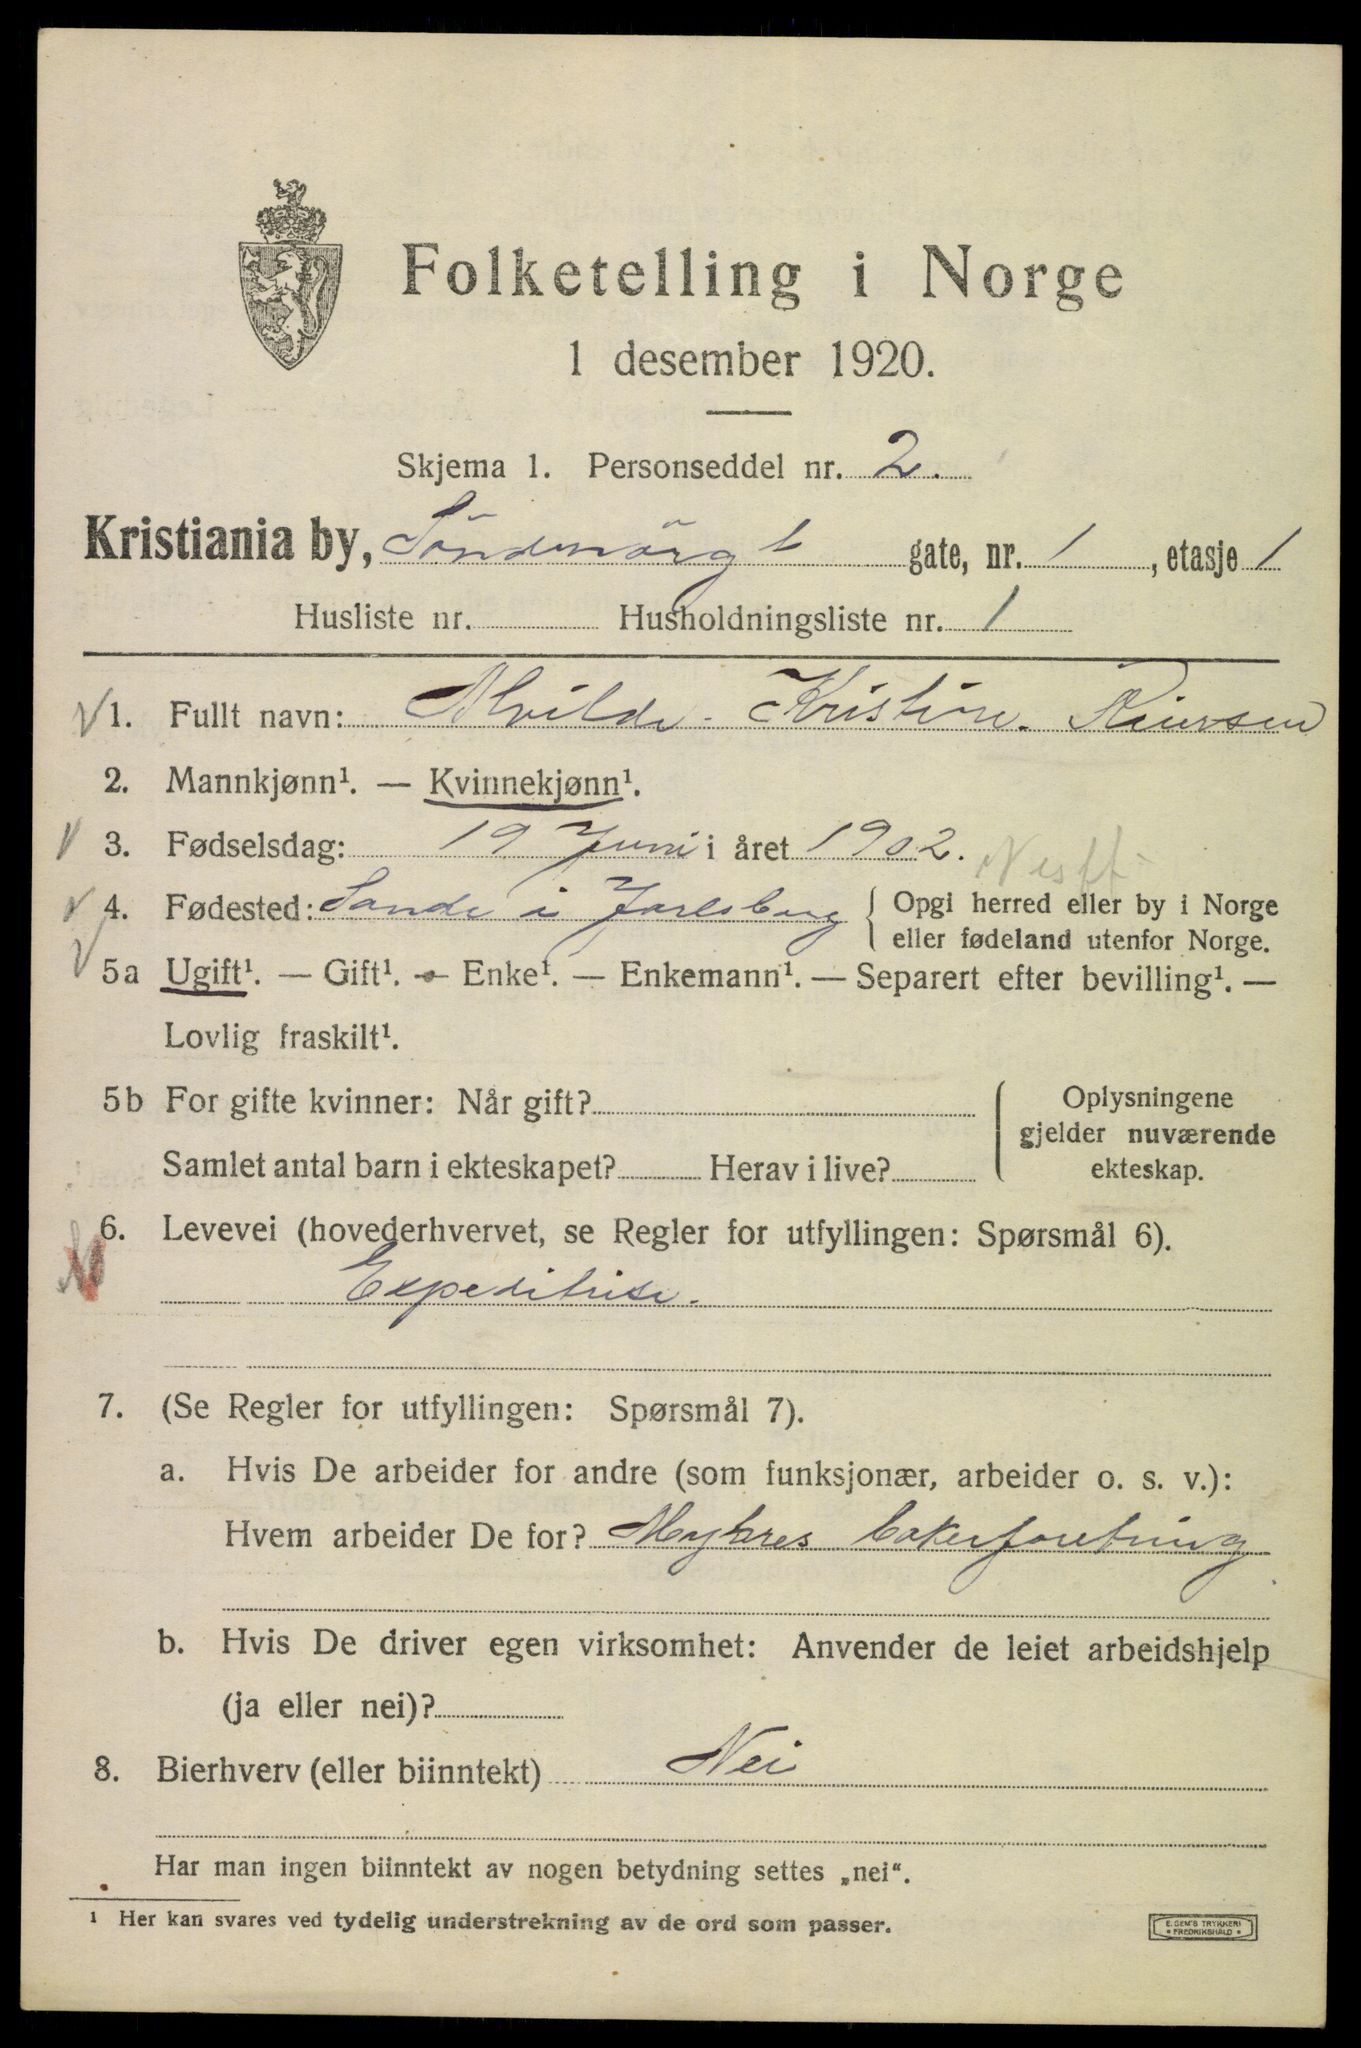 Folketelling i Norge
1 desember 1920.
Skjema 1. Personseddel nr. 2.
Kristiania by, Söndmörgt gate, nr. 1, etasje 1
Husliste nr. Husholdningsliste nr. 1
1. Fullt navn: Alvilde Kristine
2. Mannkjønn¹. — Kvinnekjønn¹.
3. Fødselsdag: 19 Juni i året 1902.
4. Fødested: Sande i Jarlsberg { Opgi herred eller by i Norge
eller fødeland utenfor Norge.
5a Ugift¹. — Gift¹. — Enke¹. — Enkemann¹. — Separert efter bevilling¹. —
Lovlig fraskilt¹.
5b For gifte kvinner: Når gift? Oplysningene
gjelder nuværende
Samlet antal barn i ekteskapet? Herav i live? ekteskap.
6. Levevei (hovederhvervet, se Regler for utfyllingen: Spørsmål 6).
Expeditrise.
7. (Se Regler for utfyllingen: Spørsmål 7).
a. Hvis De arbeider for andre (som funksjonær, arbeider o. s. v.):
Hvem arbeider De for? Myhres bakerforetning
b. Hvis De driver egen virksomhet: Anvender de leiet arbeidshjelp
(ja eller nei)?
8. Bierhverv (eller biinntekt) Nei
Har man ingen biinntekt av nogen betydning settes „nei“.
¹ Her kan svares ved tydelig understrekning av de ord som passer.
E. SEM'S TRYKKERI
• FREDRIKSHALD •